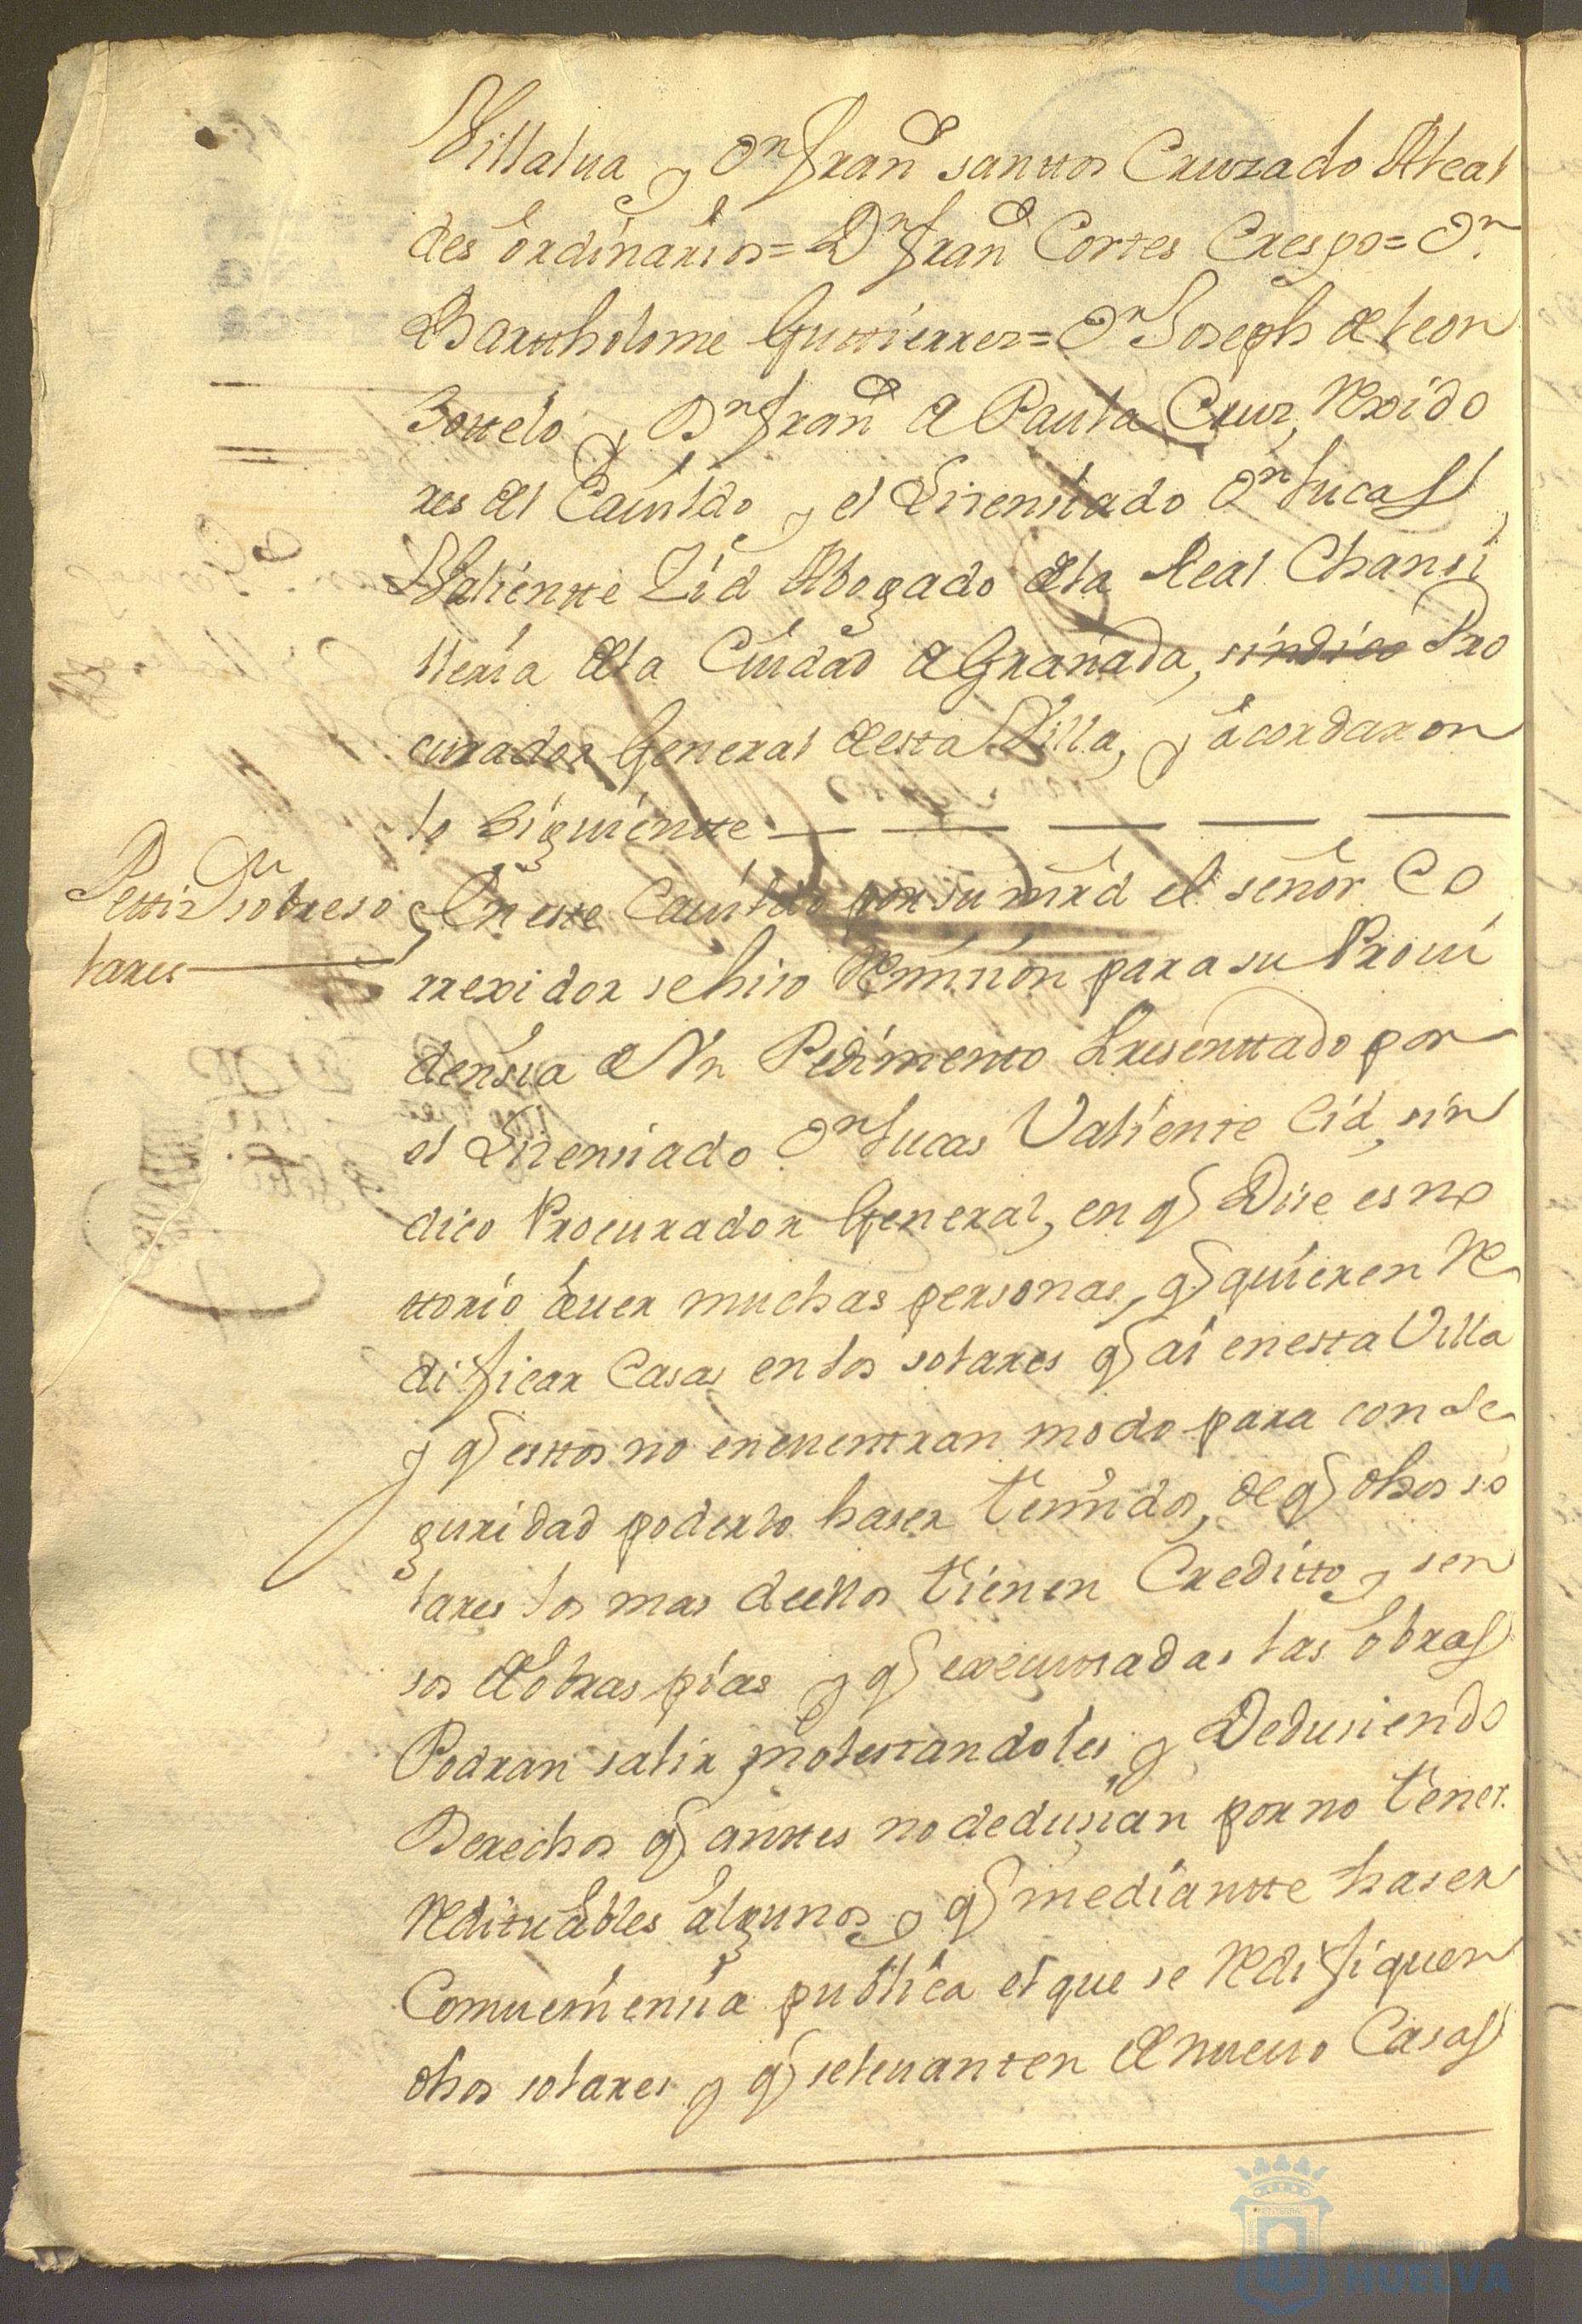 Villalua y Dn Franco santtos Cruzado Alcal
des ordinarios = Dn Franco Cortes Crespo = Dn.
Barttholome Guttierrez = Dn Joseph de leon
Sottelo y Dn Franco de Paula Cruz, Rexido
res del Cauildo y el Lizensiado Dn Lucas
Valientte Zid Abogado de la Real Chansi
lleria de la Ciudad de Granada, sindico Pro
curador General de esta Villa, y acordaron
lo siguientte
Pettizon sobre so
lares
En este Cauildo por su mrd el señor Co
rrexidor se hiso Remision para su Proui
densia de Vn Pedimento Presenttado por
el Lizensiado Dn Lucas Valiente Cid, sin
dico Procurador General, en q Dise es no
ttorio auer muchas personas, q quieren Re
dificar Casas en los solares q ai en esta Villa
y q esttos no encuentran modo para con se
guridad poderlo haser temidos, de q dhos so
lares los mas de ellos tienen Creditto y sen
sos de obras pias y q executtadas las obras
Podran salir molestandoles y Dedusiendo
Derechos q anttes no dedusian por no tener
Redituables algunos y q mediantte haser
Conueniensia publica el que se Redifiquen
dhos solares y q se leuanten de nueuo Casas
HUELVA